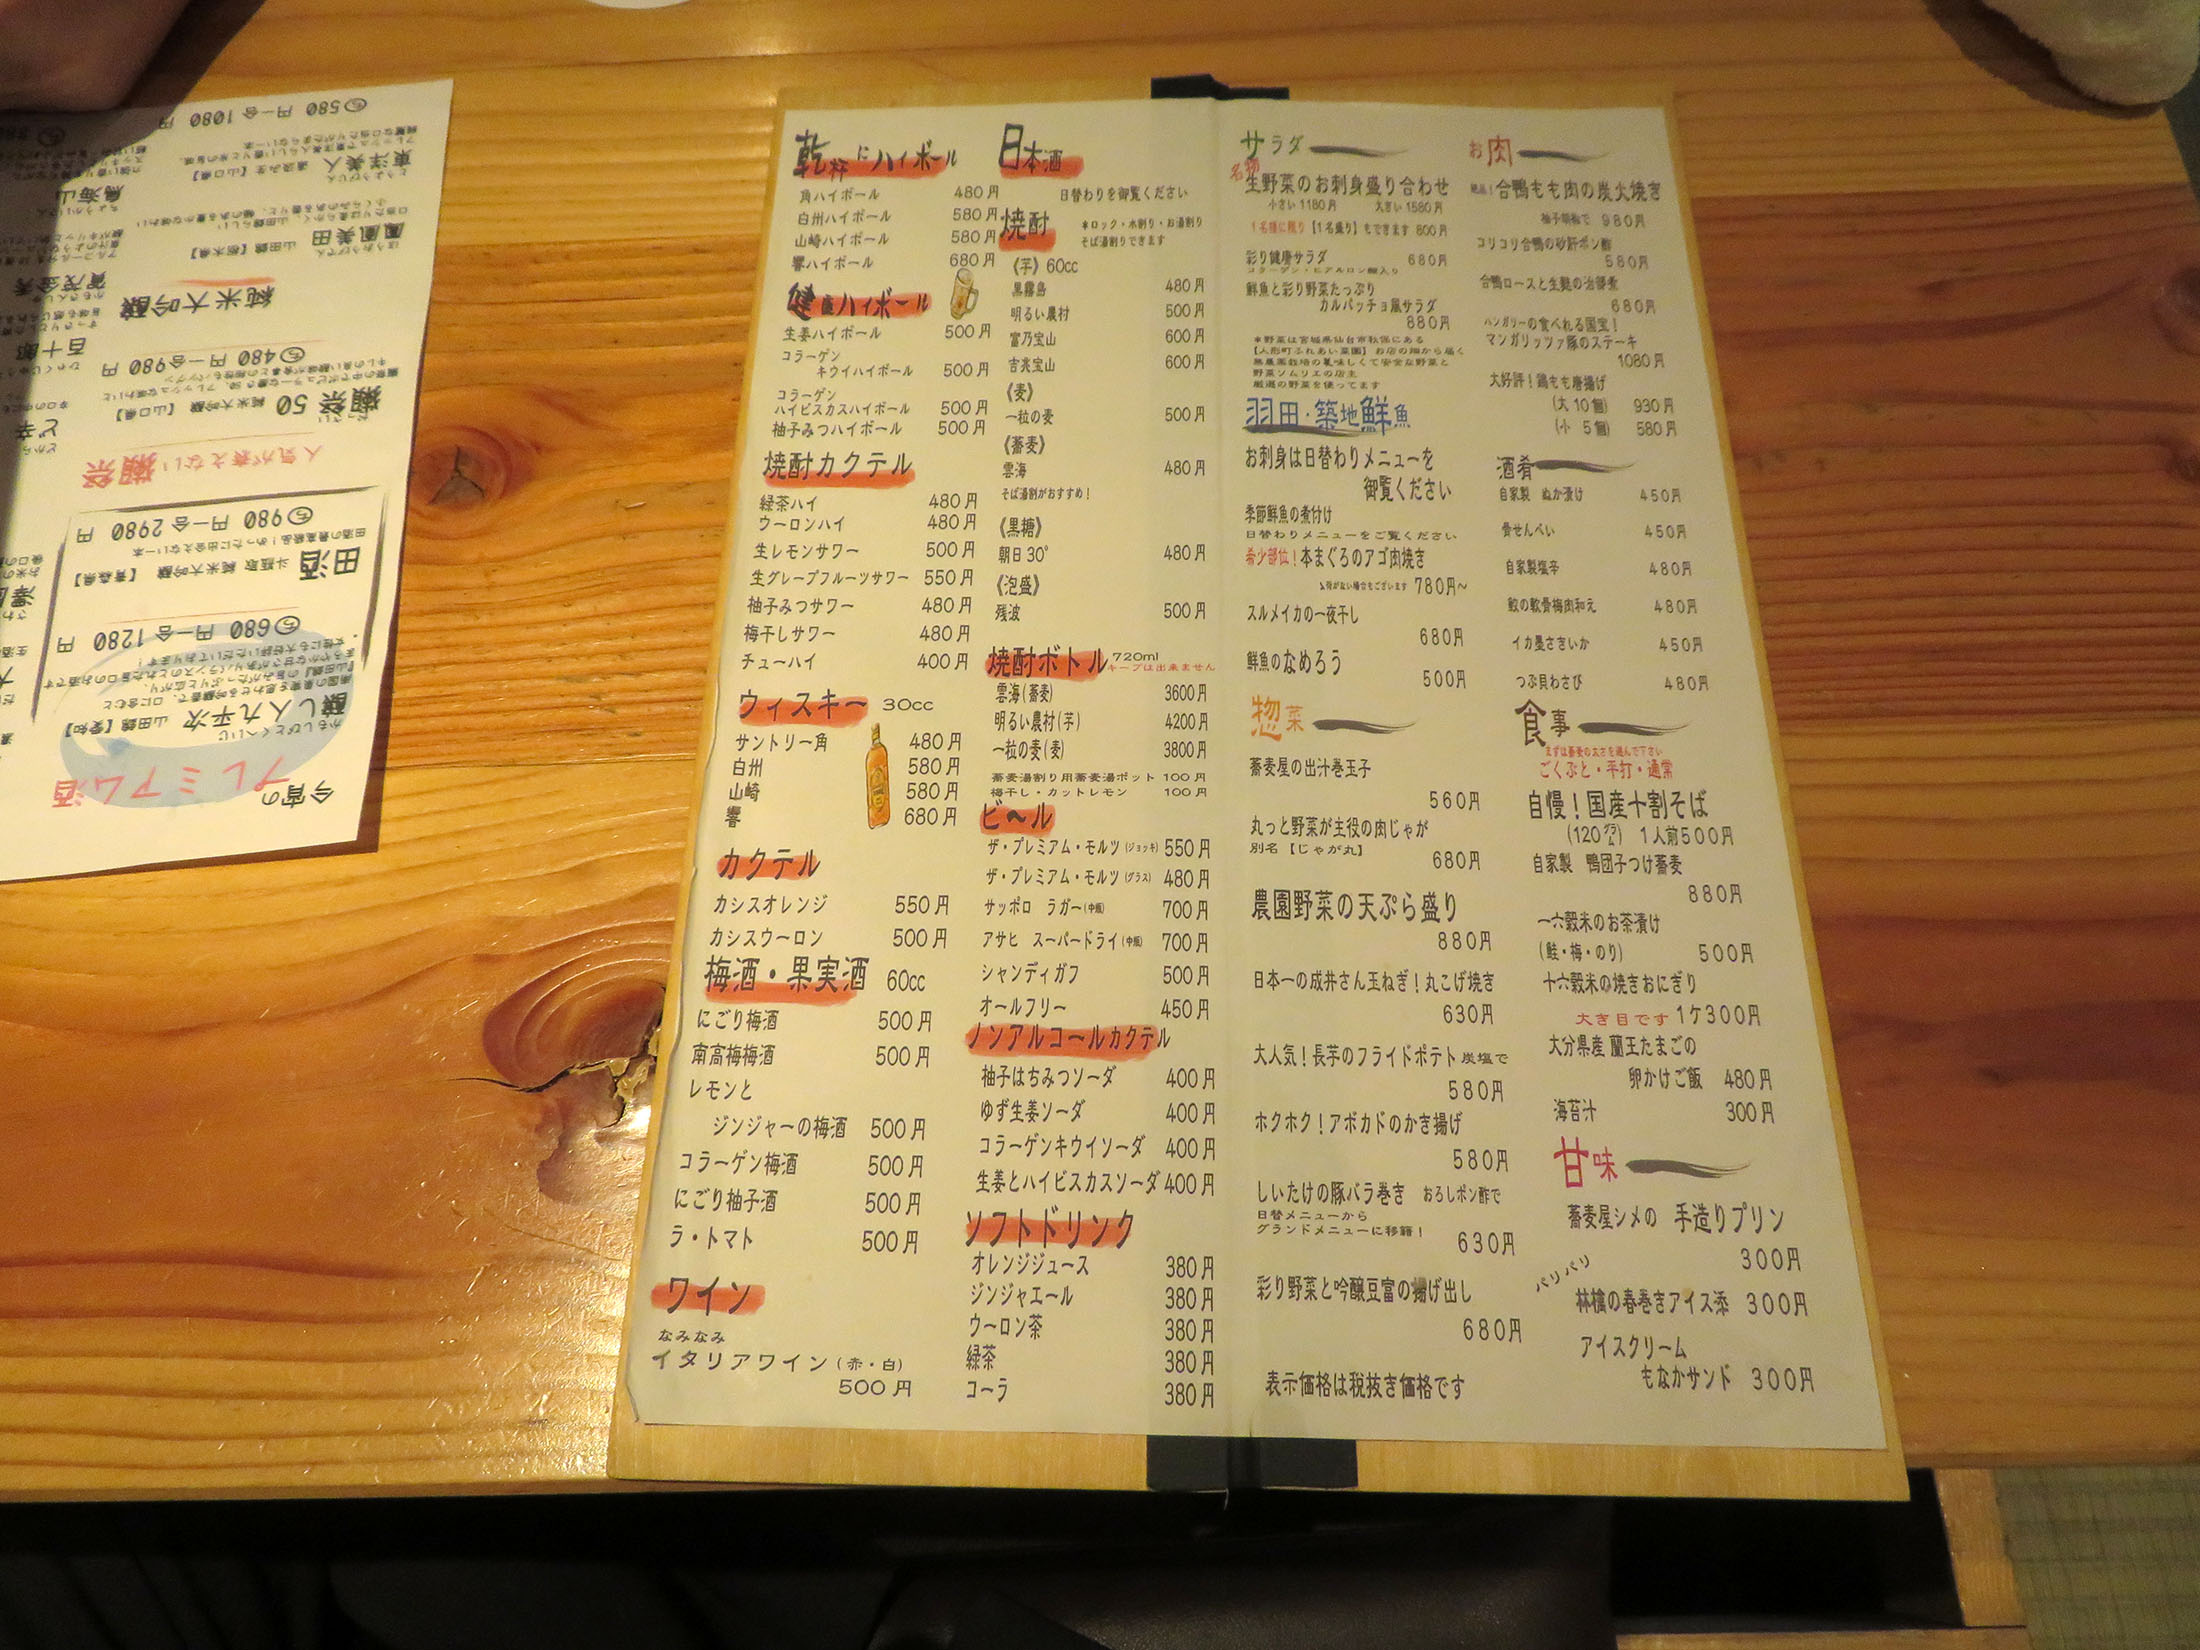 乾杯にハイボール
角ハイボール 480円
白州ハイボール 580円
山崎ハイボール 580円
響ハイボール 680円
健康ハイボール
生姜ハイボール 500円
コラーゲン
キウイハイボール 500円
コラーゲン
ハイビスカスハイボール 500円
柚子みつハイボール 500円
焼酎カクテル
緑茶ハイ 480円
ウーロンハイ 480円
生レモンサワー 500円
生グレープフルーツサワー 550円
柚子みつサワー 480円
梅干しサワー 480円
チューハイ 400円
ウィスキー 30cc
サントリー角 480円
白州 580円
山崎 580円
響 680円
カクテル
カシスオレンジ 550円
カシスウーロン 500円
梅酒・果実酒 60cc
にごり梅酒 500円
南高梅梅酒 500円
レモンと
ジンジャーの梅酒 500円
コラーゲン梅酒 500円
にごり柚子酒 500円
ラ・トマト 500円
ワイン
なみなみ
イタリアワイン(赤・白)
500円
日本酒
日替わりを御覧ください
焼酎
*ロック・水割り・お湯割り
そば湯割りできます
《芋》60cc
黒霧島 480円
明るい農村 500円
富乃宝山 600円
吉兆宝山 600円
《麦》
一粒の麦 500円
《蕎麦》
雲海 480円
そば湯割がおすすめ!
《黒糖》
朝日30° 480円
《泡盛》
残波 500円
焼酎ボトル 720ml
キープは出来ません
雲海(蕎麦) 3600円
明るい農村(芋) 4200円
一粒の麦(麦) 3800円
蕎麦湯割り用蕎麦湯ポット 100円
梅干し・カットレモン 100円
ビ〜ル
ザ・プレミアム・モルツ(ジョッキ) 550円
ザ・プレミアム・モルツ(グラス) 480円
サッポロ ラガー(中瓶) 700円
アサヒ スーパードライ(中瓶) 700円
シャンディガフ 500円
オールフリー 450円
ノンアルコールカクテル
柚子はちみつソーダ 400円
ゆず生姜ソーダ 400円
コラーゲンキウイソーダ 400円
生姜とハイビスカスソーダ 400円
ソフトドリンク
オレンジジュース 380円
ジンジャエール 380円
ウーロン茶 380円
緑茶 380円
コーラ 380円
サラダ
名物
生野菜のお刺身盛り合わせ
小さい1180円 大きい1580円
1名様に限り【1名盛り】もできます 800円
彩り健康サラダ 680円
コラーゲン・ヒアルロン酸入り
鮮魚と彩り野菜たっぷり
カルパッチョ風サラダ
880円
*野菜は宮城県仙台市秋保にある
【人形町ふれあい菜園】お店の畑から届く
無農薬栽培の美味しくて安全な野菜と
野菜ソムリエの店主
厳選の野菜を使ってます
羽田・築地鮮魚
お刺身は日替わりメニューを
御覧ください
季節鮮魚の煮付け
日替わりメニューをご覧ください
希少部位!本まぐろのアゴ肉焼き
入荷がない場合もございます 780円~
スルメイカの一夜干し
680円
鮮魚のなめろう
500円
惣菜
蕎麦屋の出汁巻玉子
560円
丸っと野菜が主役の肉じゃが
別名【じゃが丸】 680円
農園野菜の天ぷら盛り
880円
日本一の成井さん玉ねぎ!丸こげ焼き
630円
大人気!長芋のフライドポテト 炭塩で
580円
ホクホク!アボカドのかき揚げ
580円
しいたけの豚バラ巻き おろしポン酢で
日替メニューから
グランドメニューに移籍!
630円
彩り野菜と吟醸豆富の揚げ出し
680円
表示価格は税抜き価格です
お肉
絶品!合鴨もも肉の炭火焼き
柚子胡椒で 980円
コリコリ合鴨の砂肝ポン酢
580円
合鴨ロースと生麩の治部煮
680円
ハンガリーの食べれる国宝!
マンガリッツァ豚のステーキ
1080円
大好評!鶏もも唐揚げ
(大 10個) 930円
(小 5個) 580円
酒肴
自家製 ぬか漬け 450円
骨せんべい 450円
自家製塩辛 480円
鮫の軟骨梅肉和え 480円
イカ墨さきいか 450円
つぶ貝わさび 480円
食事
まずは蕎麦の太さを選んで下さい
ごくぶと・平打・通常
自慢!国産十割そば
(120グラム) 1人前500円
自家製 鴨団子つけ蕎麦
880円
一六穀米のお茶漬け
(鮭・梅・のり) 500円
十六穀米の焼きおにぎり
大き目です 1ケ300円
大分県産 蘭王たまごの
卵かけご飯 480円
海苔汁 300円
甘味
蕎麦屋シメの 手造りプリン
300円
パリパリ
林檎の春巻きアイス添 300円
アイスクリーム
もなかサンド 300円
今宵の
プレミアム酒
かもしびとくへいじ
醸し人九平次 山田錦【愛知】
680円 一合1280円
田酒 斗瓶取 純米大吟醸 【青森県】
980円 一合2980円
人気が衰えない獺祭
獺祭 50 純米大吟醸【山口県】
480円 一合980円
純米大吟醸
鳳凰美田 山田錦【栃木県】
東洋美人
580円 一合1080円
鳥海山
賀茂金秀
百十郎
ど辛